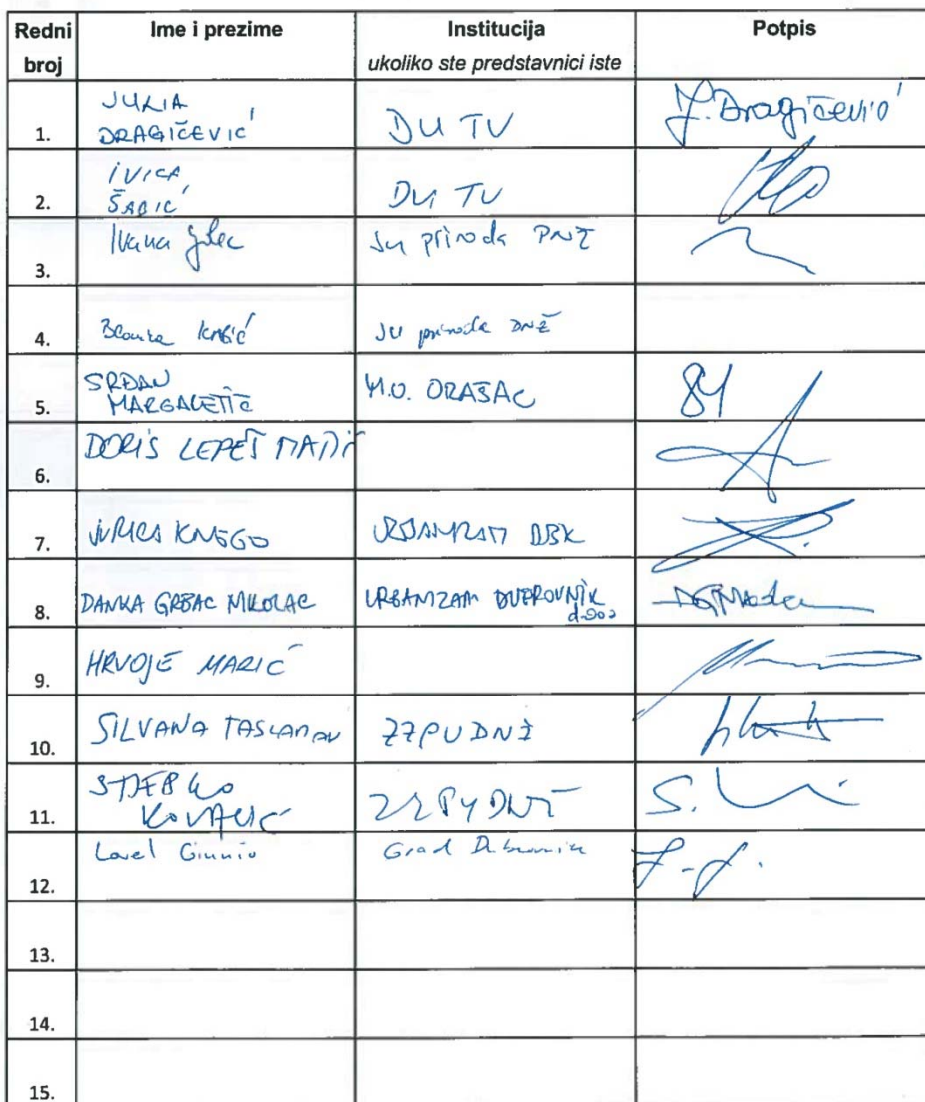 Redni broj Ime i prezime Institucija Potpis
ukoliko ste predstavnici iste
1. JULIA DRAGIČEVIĆ DU TV J. Dragičević
2. IVICA ŠABIĆ DU TV
3. Ivana JU priroda DNŽ
4. JU priroda DNŽ
5. SRĐAN MARGARETIĆ M.O. ORAŠAC
6. DORIS LEPEŠ
7. JURICA KNEGO
8. DANKA GRBAC MIKOLAC URBANIZAM DUBROVNIK d.o.o.
9. HRVOJE MARIĆ
10. SILVANA TASLAMAN ZZPU DNŽ
11. STJEPKO KOVAČIĆ ZZPU DNŽ
12. Grad Dubrovnik
13.
14.
15.